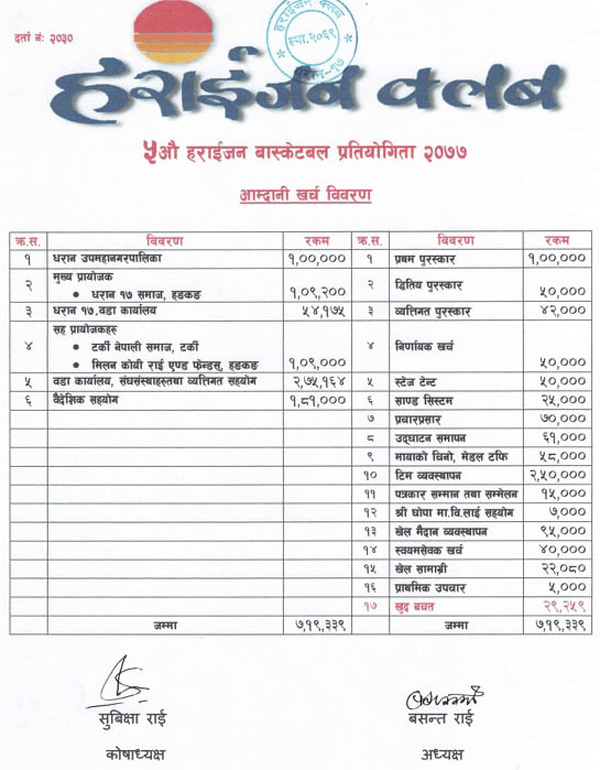 दर्ता नं: २०३०
हराईजन क्लब
स्था.२०६९
धरान-१७
हराईजन क्लब
५औ हराईजन बास्केटबल प्रतियोगिता २०७७
आम्दानी खर्च विवरण
क्र.स. विवरण रकम क्र.स. विवरण रकम
१ धरान उपमहानगरपालिका १,००,००० १ प्रथम पुरस्कार १,००,०००
२ मुख्य प्रायोजक
• धरान १७ समाज, हङकङ १,०९,२०० २ द्वितिय पुरस्कार ५०,०००
३ धरान १७,वडा कार्यालय ५४,१७५ ३ व्यक्तिगत पुरस्कार ४२,०००
४ सह प्रायोजकहरु
• टर्की नेपाली समाज, टर्की
• मिलन कोयी राई एण्ड फेन्डस्, हङकङ १,०९,००० ४ निर्णायक खर्च ५०,०००
५ वडा कार्यालय, संघसंस्थाहरुतथा व्यक्तिगत सहयोग २,७५,१६४ ५ स्टेज टेन्ट ५०,०००
६ वैदेशिक सहयोग १,८१,००० ६ साण्ड सिस्टम २५,०००
७ प्रचारप्रसार ७०,०००
८ उद्घाटन समापन ६१,०००
९ मायाको चिनो, मेडल टफि ५८,०००
१० टिम व्यवस्थापन २,५०,०००
११ पत्रकार सम्मान तथा सम्मेलन १५,०००
१२ श्री घोपा मा.वि.लाई सहयोग ७,०००
१३ खेल मैदान व्यवस्थापन ९५,०००
१४ स्वयमसेवक खर्च ४०,०००
१५ खेल सामाग्री २२,०८०
१६ प्राथमिक उपचार ५,०००
१७ खुद बचत २९,२५९
जम्मा ७,१९,३३९ जम्मा ७,१९,३३९
सुबिक्षा राई बसन्त राई
कोषाध्यक्ष अध्यक्ष